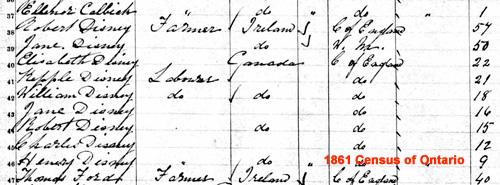 37 Ellenor Callick do do " 1
38 Robert Disney Farmer Ireland " C of England 57
39 Jane Disney do W. M. 50
40 Elisabeth Disney Canada C of England 22
41 Kepple Disney Labourer do do 21
42 William Disney do do do 18
Jane Disney do do 16
Robert Disney do do 15
Charles Disney do do 12
Henry Disney do do 9
47 Thomas Ford Farmer Ireland " C of England 40
1861 Census of Ontario